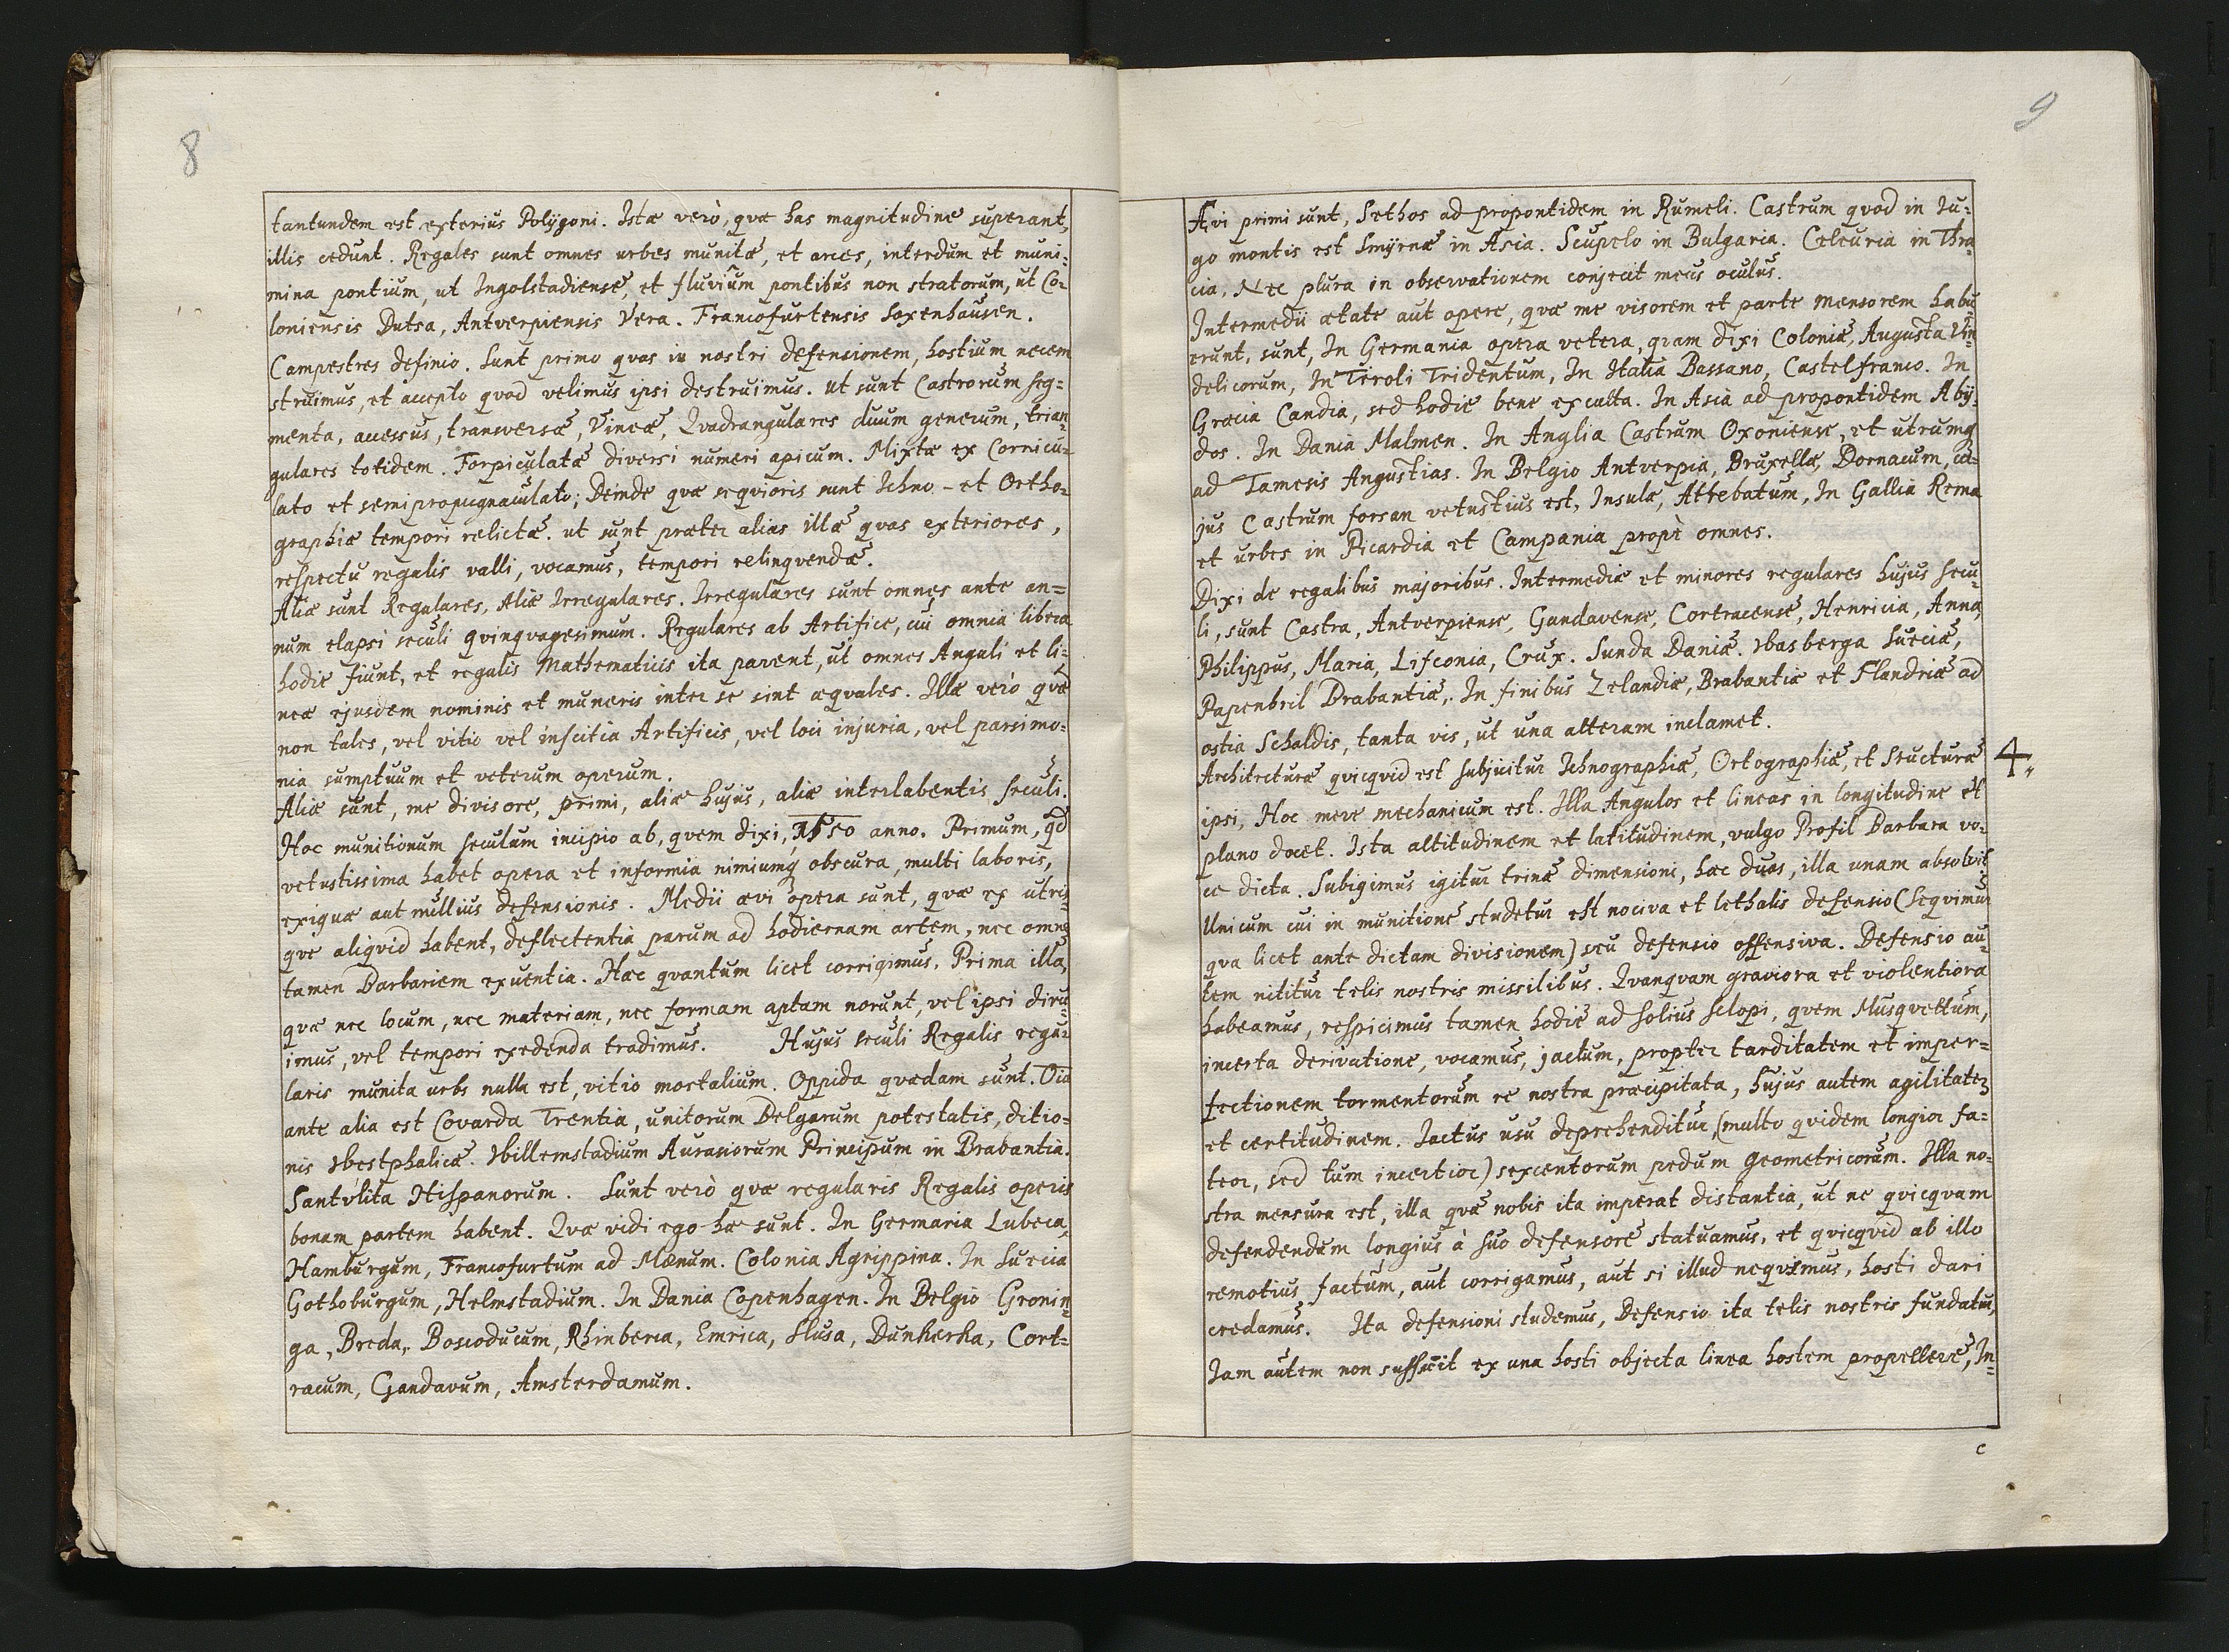 8
tantundem est exterius Polygoni. Istæ verò, qvæ has magnitudine superant,
illis cedunt. Regales sunt omnes urbes munitæ, et arces, interdum et muni:
mina pontium, ut Ingolstadiense, et fluviûm pontibus non stratorum, ut Co-
loniensis Dutsa, Antverpiensis Vera. Francofurtensis Saxenhausen.
Campestres definio. Sunt primo qvas in nostri defensionem, hostium necem
struimus, et accepto qvod velimus ipsi destruimus. ut sunt Castrorum seg=
menta, accessus, transversæ, Vineæ, Qvadrangulares duum generum, trian-
gulares totidem. Forpiculatæ diversi numeri apicum. Mixtæ ex Cornicu-
lato et semipropugnaculato; Deinde qvæ seqvioris sunt Ichno- et Ortho-
graphiæ tempori relictæ. ut sunt præter alias illæ qvas exteriores,
respectu regalis valli, vocamus, tempori relinqvendæ.
Aliæ sunt Regulares, Aliæ Irregulares. Irregulares sunt omnes ante an=
num elapsi seculi qvinqvagesimum. Regulares ab Artifice, cui omnia libera
hodie fiunt, et regulis Mathematicis ita parent, ut omnes Anguli et li=
neæ ejusdem nominis et muneris inter se sint æqvales. Illæ verò qvæ
non tales, vel vitio vel inscitia Artificis, vel loci injuria, vel parsimo-
nia sumptuum et veterum operum.
Aliæ sunt, me divisore, primi, aliæ hujus, aliæ interlabentis seculi.
Hoc munitionum seculum incipio ab, qvem dixi, 1550 anno. Primum, qd
vetustissima habet opera et informia nimiumq obscura, multi laboris,
exiguæ aut nullius defensionis. Medii ævi opera sunt, qvæ ex utris-
qve aliqvid habent, deflectentia parum ad hodiernam artem, nec omnē
tamen Barbariem exuentia. Hæc qvantum licet corrigimus. Prima illa,
qvæ nec locum, nec materiam, nec formam aptam norunt, vel ipsi diru-
imus, vel tempori exedenda tradimus. Hujus seculi Regalis regu-
laris munita urbs nulla est, vitio mortalium. Oppida qvædam sunt. Oīa
ante alia est Covarda Trentia, unitorum Belgarum potestatis, ditio=
nis Westphalicæ. Willemstadium Aurasiorum Principum in Brabantia.
Santvlita Hispanorum. Sunt verò qvæ regularis Regalis operis
bonam partem habent. Qvæ vidi ego hæ sunt. In Germania Lubeca,
Hamburgum, Francofurtum ad Mænum. Colonia Agrippina. In Suecia
Gothoburgum, Helmstadium. In Dania Copenhagen. In Belgio Gronin-
ga, Breda, Boscoducum, Rhinberca, Emrica, Slusa, Dunkerka, Cort=
racum, Gandavum, Amsterdamum.
9
Ævi primi sunt, Sethos ad propontidem in Rumeli. Castrum qvod in Iu:
go montis est Smyrnæ in Asia. Scupelo in Bulgaria. Celeuria in Thra
cia. Nec plura in observationem conjecit meus oculus.
Intermedii ætate aut opere, qvæ me visorem et parte mensorem habu
erunt, sunt, In Germania opera vetera, qvam dixi Coloniæ, Augusta Vin
delicorum, In Tiroli Tridentum, In Italia Bassano, Castelfranco. In
Græcia Candia, sed hodie bene exculta. In Asia ad propontidem Aby:
dos. In Dania Malmen. In Anglia Castrum Oxoniense, et utrumq
ad Tamesis Angustias. In Belgio Antverpia, Bruxellæ, Dornacum, cu=
jus Castrum forsan vetustius est, Insulæ, Attebatum, In Gallia Rema
et urbes in Picardia et Campania propè omnes.
Dixi de regalibus majoribus. Intermediæ et minores regulares hujus secu-
li, sunt Castra, Antverpiense, Gandavense, Cortracense, Henricia, Anna,
Philippus, Maria, Lifconia, Crux. Sunda Daniæ. Wasberga Sueciæ,
Papenbril Brabantiæ. In finibus Zelandiæ, Brabantiæ et Flandriæ ad
ostia Schaldis, tanta vis, ut una alteram inclamet.
Architecturæ qvicqvid est subjicitur Ichnographiæ, Ortographiæ, et Structuræ
4.
ipsi, Hoc mere mechanicum est. Illa Angulos et lineas in longitudine et
plano docet. Ista altitudinem et latitudinem, vulgo Profil Barbara vo-
ce dicta. Subigimus igitur trinæ dimensioni, hæc duas, illa unam absolvit
Unicum cui in munitione studetur est nociva et lethalis defensio (Seqvimur
qva licet ante dictam divisionem) seu defensio offensiva. Defensio au-
tem nititur telis nostris missilibus. Qvanqvam graviora et violentiora
habeamus, respicimus tamen hodie ad solius sclopi, qvem Musqvettum,
incerta derivatione, vocamus, jactum, propter tarditatem et imper=
fectionem tormentorum re nostra præcipitata, hujus autem agilitatez
et certitudinem. Iactus usu deprehenditur, (multo qvidem longior fa=
teor, sed tum incertior) sexcentorum pedum geometricorum. Illa no=
stra mensura est, illa qvæ nobis ita imperat distantia, ut ne qvicqvam
defendendum longius à suo defensore statuamus, et qvicqvid ab illo
remotius factum, aut corrigamus, aut si illud neqvimus, hosti dari
credamus. Ita defensioni studemus, Defensio ita telis nostris fundatur,
Iam autem non sufficit ex una hosti objecta linea hostem propellere, In-
c